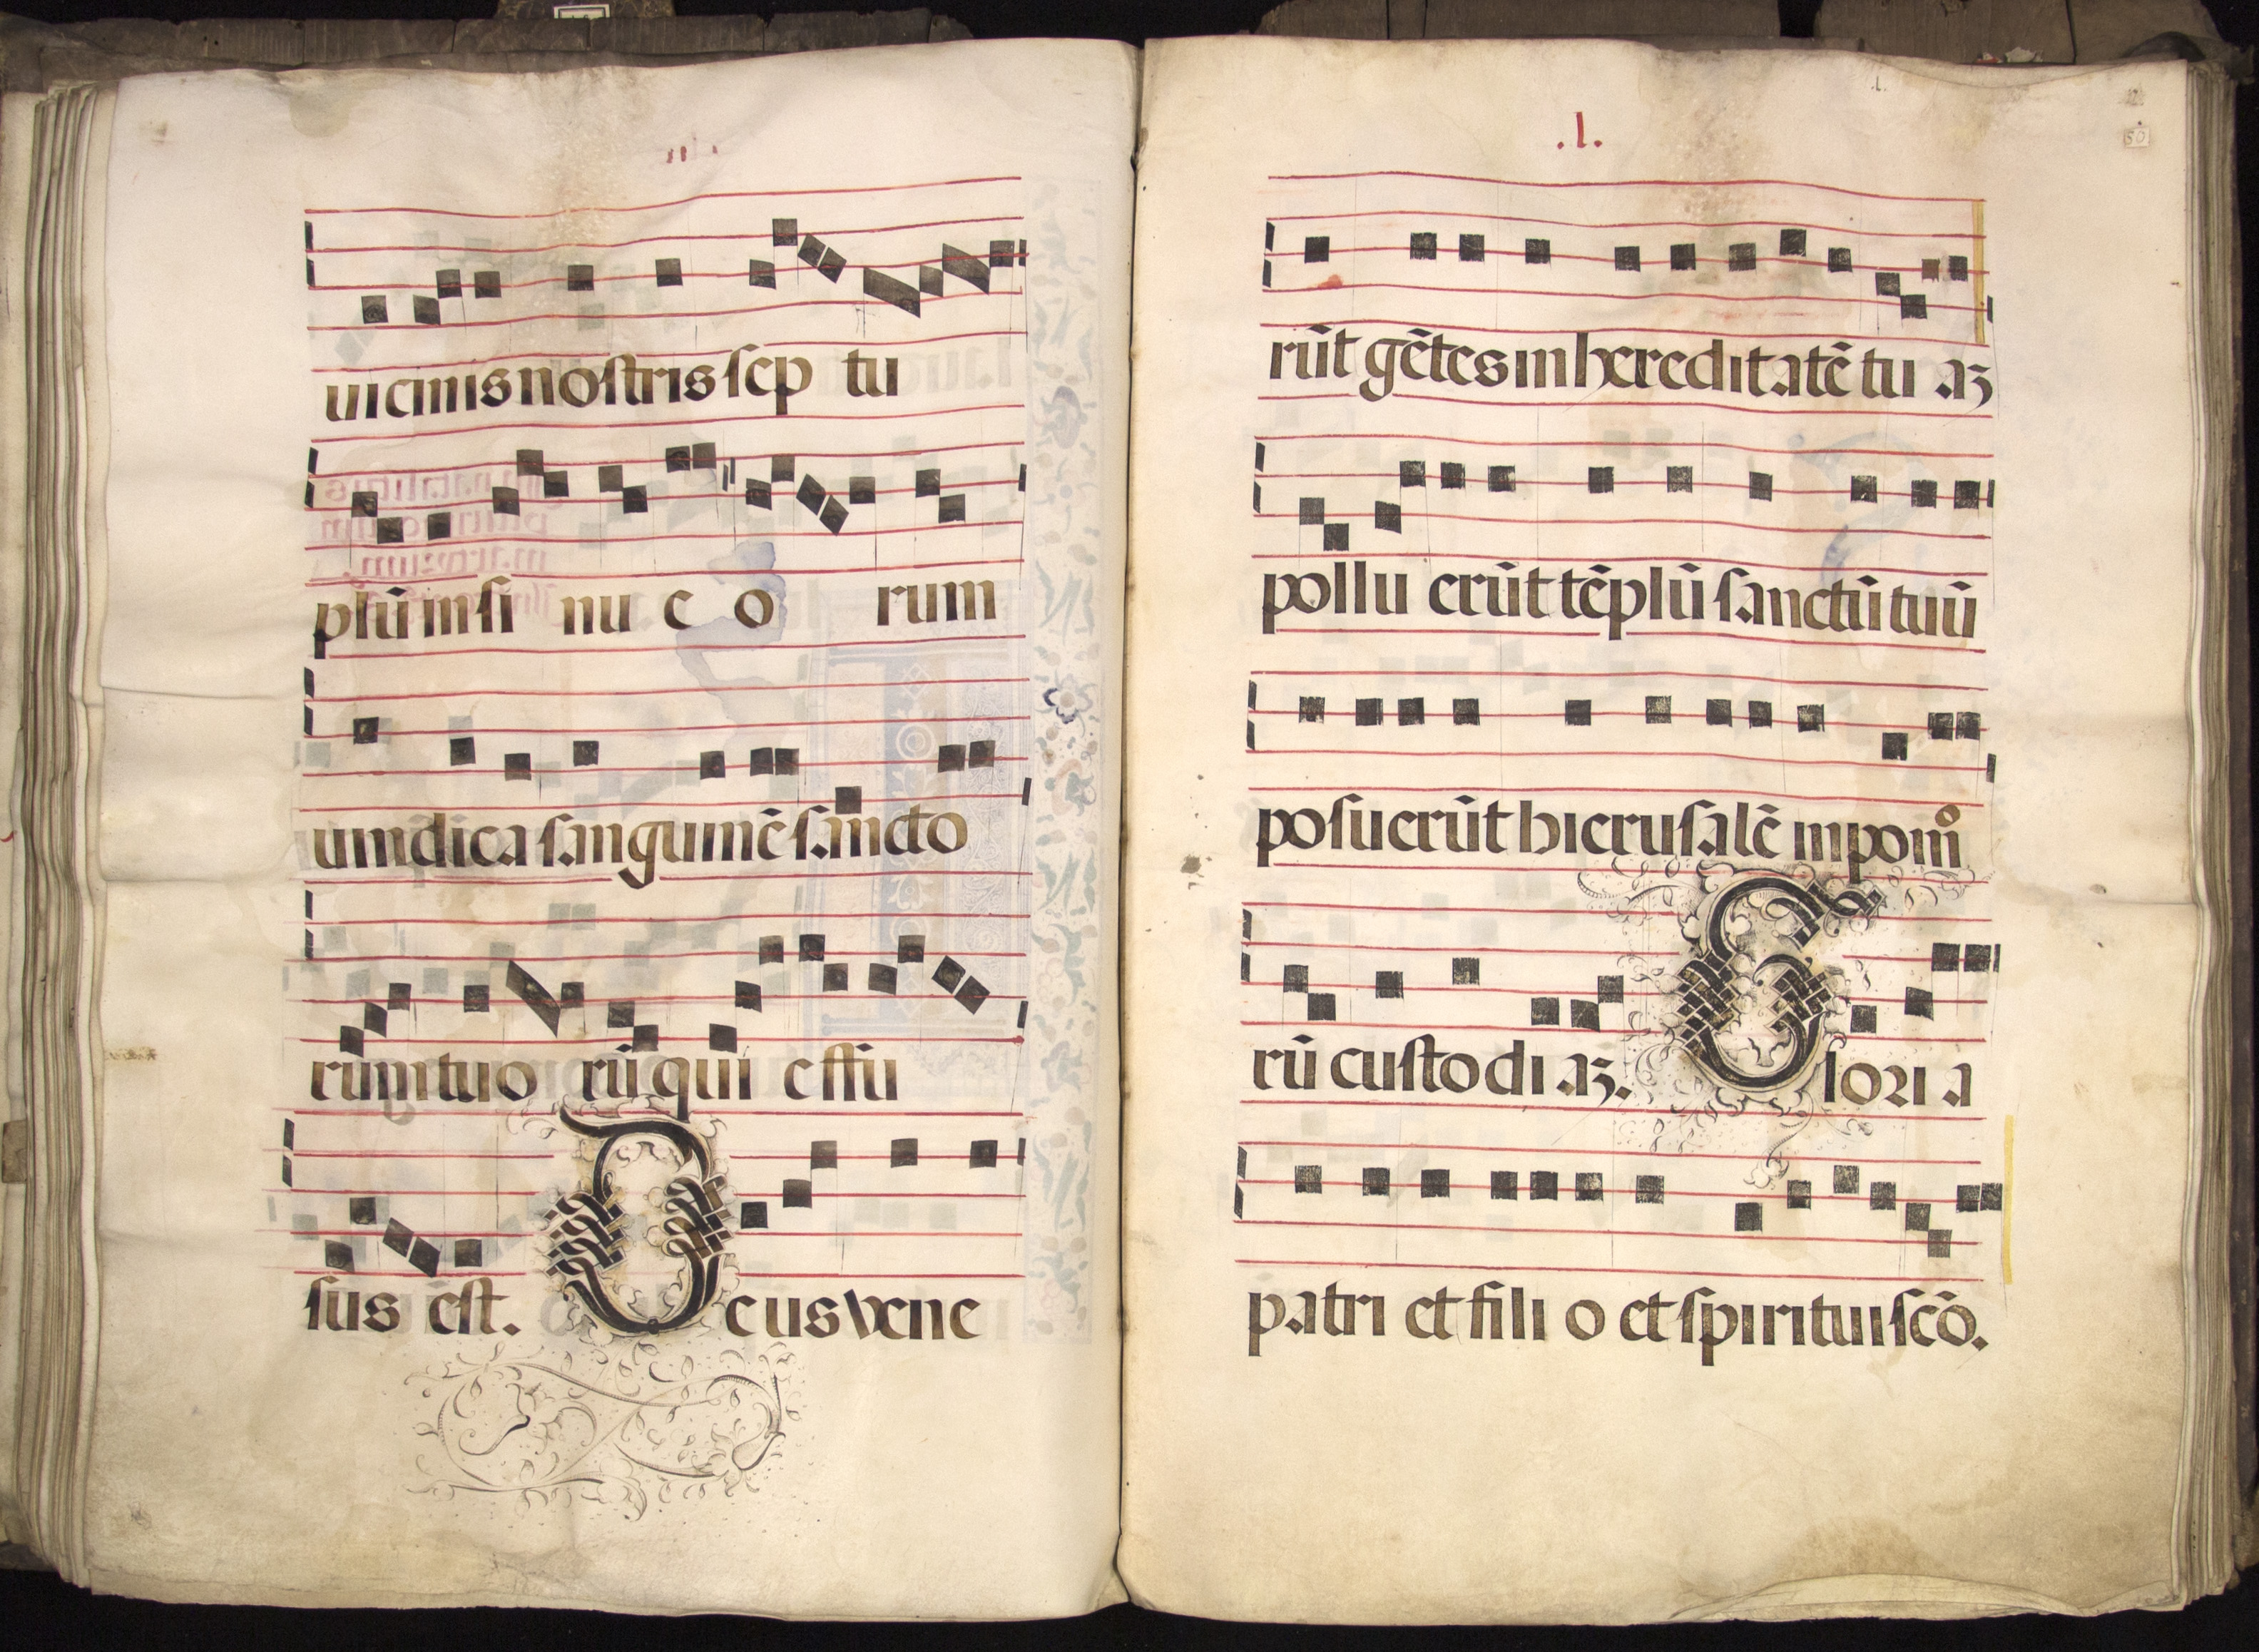 uicinis nostris sep tu
plū in si nu e o rum
uindica sanguinē sancto
rum tuo rū qui effu
sus est. Deus vene
.l.
50
rūt gētes in hereditatē tu aʒ
pollu erūt tēplū sanctū tuū
posuerūt hierusalē in pomͦ
rū custodi aʒ. Glori a
patri et fili o et spiritui scō.